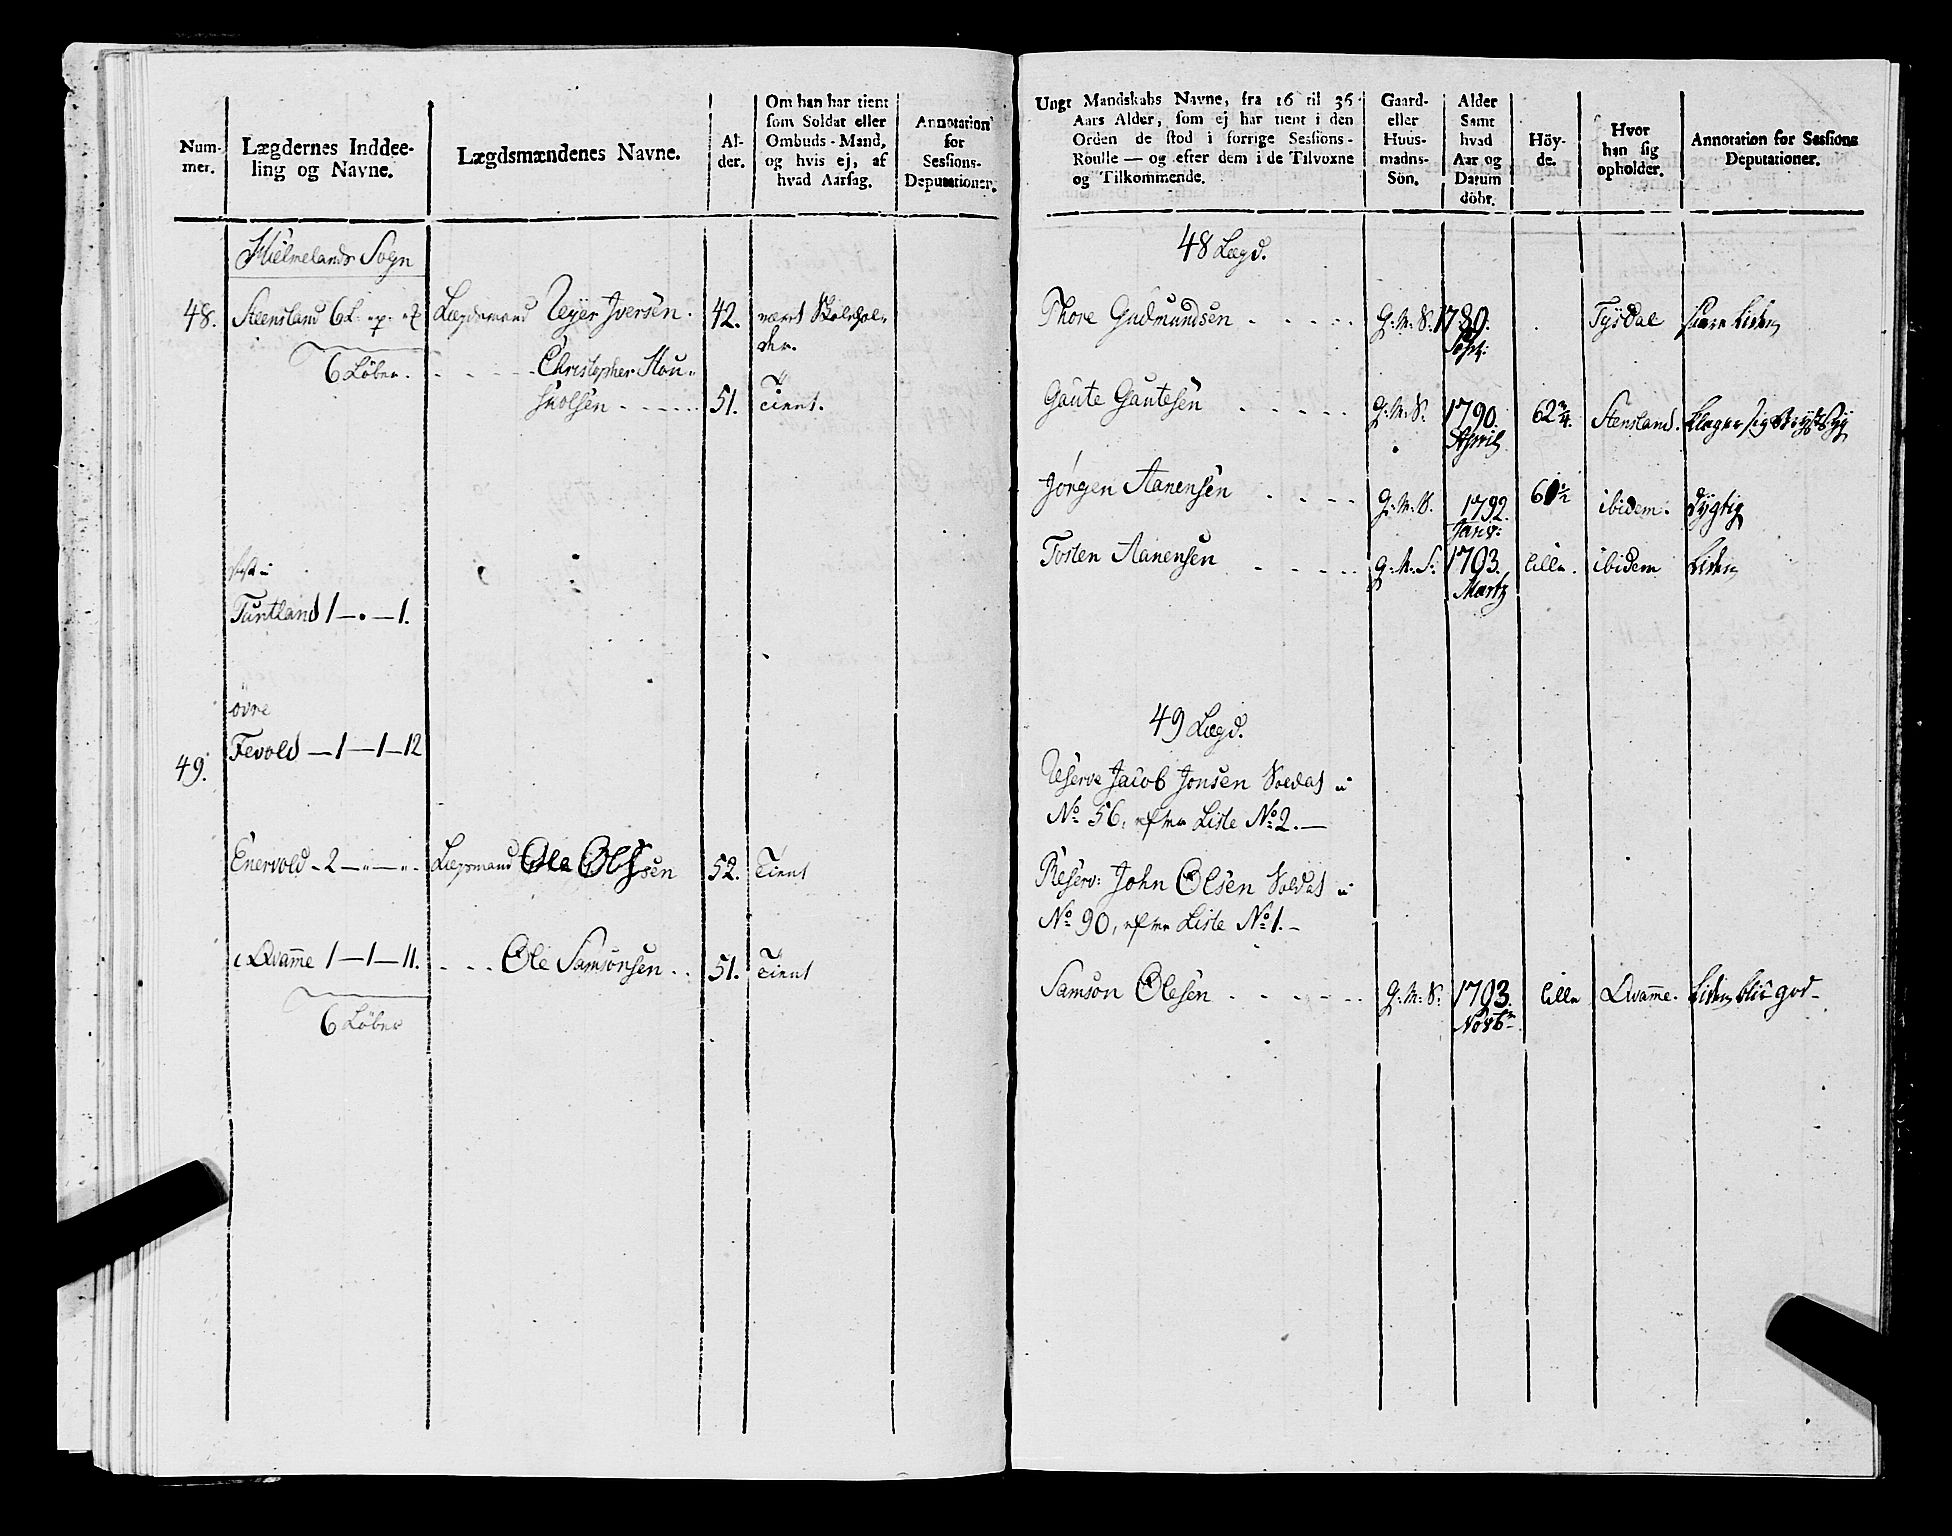 Num-
mer.
Lægdernes Inddee-
ling og Navne.
Lægdsmændenes Navne.
Al-
der.
Om han har tient
som Soldat eller
Ombuds-Mand,
og hvis ej, af
hvad Aarsag.
Annotation
for
Sessions-
Deputationer.
Hielmelands Sogn
48. Steensland 6 L. Lægdsmand Iversen. 42. været
6 Löber. - - - - - Christopher Hou-
sholsen - - - - - 51. Tient.
Tuntland 1 — • — 1.
övre
49. Fevold — 1 — 1 — 12
Enervold - 2 — " — " - Lægsmand Ole Olssen 52. Tient
Qvam̄e 1 — 1 — 11. - - - Ole Samsonsen - - 51. Tient
6 Löber
Ungt Mandskabs Navne, fra 16 til 36
Aars Alder, som ej har tient i den
Orden de stod i forrige Sessions-
Roulle — og efter dem i de Tilvoxne
og Tilkommende.
Gaard-
eller
Huus-
mands-
Sön.
Alder
Samt
hvad
Aar og
Datum
döbt.
Höy-
de.
Hvor
han sig
opholder.
Annotation for Sessions
Deputationer.
48 Lægd.
Thore Gudmundsen - - - - - G: M: S. 1789. Tysdal liden
Sept:
Gaute Gautesen - - - - - G: M: S. 1790. 62 3/4. Stensland. klager sig
April
Jörgen Aanensen - - - - G: M: S. 1792. 6 1/2 ibidem. dygtig
Janv:
Tosten Aanensen - - - - - G: M: S: 1793. lille. ibidem liden
Martz
49 Lægd.
Reserve Jacob Jonsen Soldat "
No 56, efter Liste No 2. —
Reserv: John Olsen Soldat "
No 90, efter Liste No 1. -
Samson Olesen - - - - - - G: M: S: 1793. lille Qvam̄e. liden bliv god -
Novbr